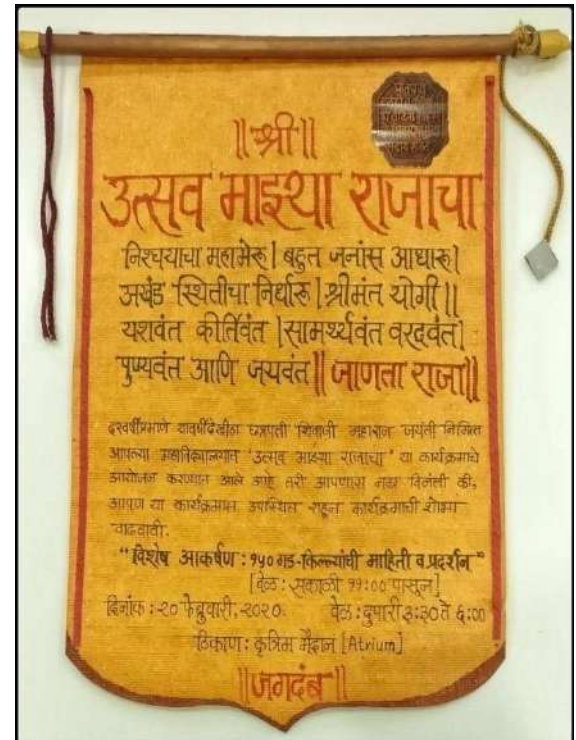 ॥श्री॥
उत्सव माझ्या राजाचा
निश्चयाचा महामेरू। बहुत जनांस आधारू।
अखंड स्थितीचा निर्धारू। श्रीमंत योगी॥
यशवंत कीर्तिवंत।सामर्थ्यवंत वरदवंत।
पुण्यवंत आणि जयवंत॥जाणता राजा॥
दरवर्षीप्रमाणे यावर्षीदेखील छत्रपती शिवाजी महाराज जयंती निमित्त
आपल्या महाविद्यालयात 'उत्सव माझ्या राजाचा' या कार्यक्रमाचे
आयोजन करण्यात आले आहे तरी आपणास नम्र विनंती की,
आपण या कार्यक्रमास उपस्थित राहून कार्यक्रमाची शोभा
वाढवावी.
"विशेष आकर्षण : १५० गड-किल्ल्यांची माहिती व प्रदर्शन"
[वेळ : सकाळी ११:०० पासून]
दिनांक : २० फेब्रुवारी, २०२०. वेळ : दुपारी ३:३० ते ६:००
ठिकाण : कृत्रिम मैदान [Atrium]
॥जगदंब॥